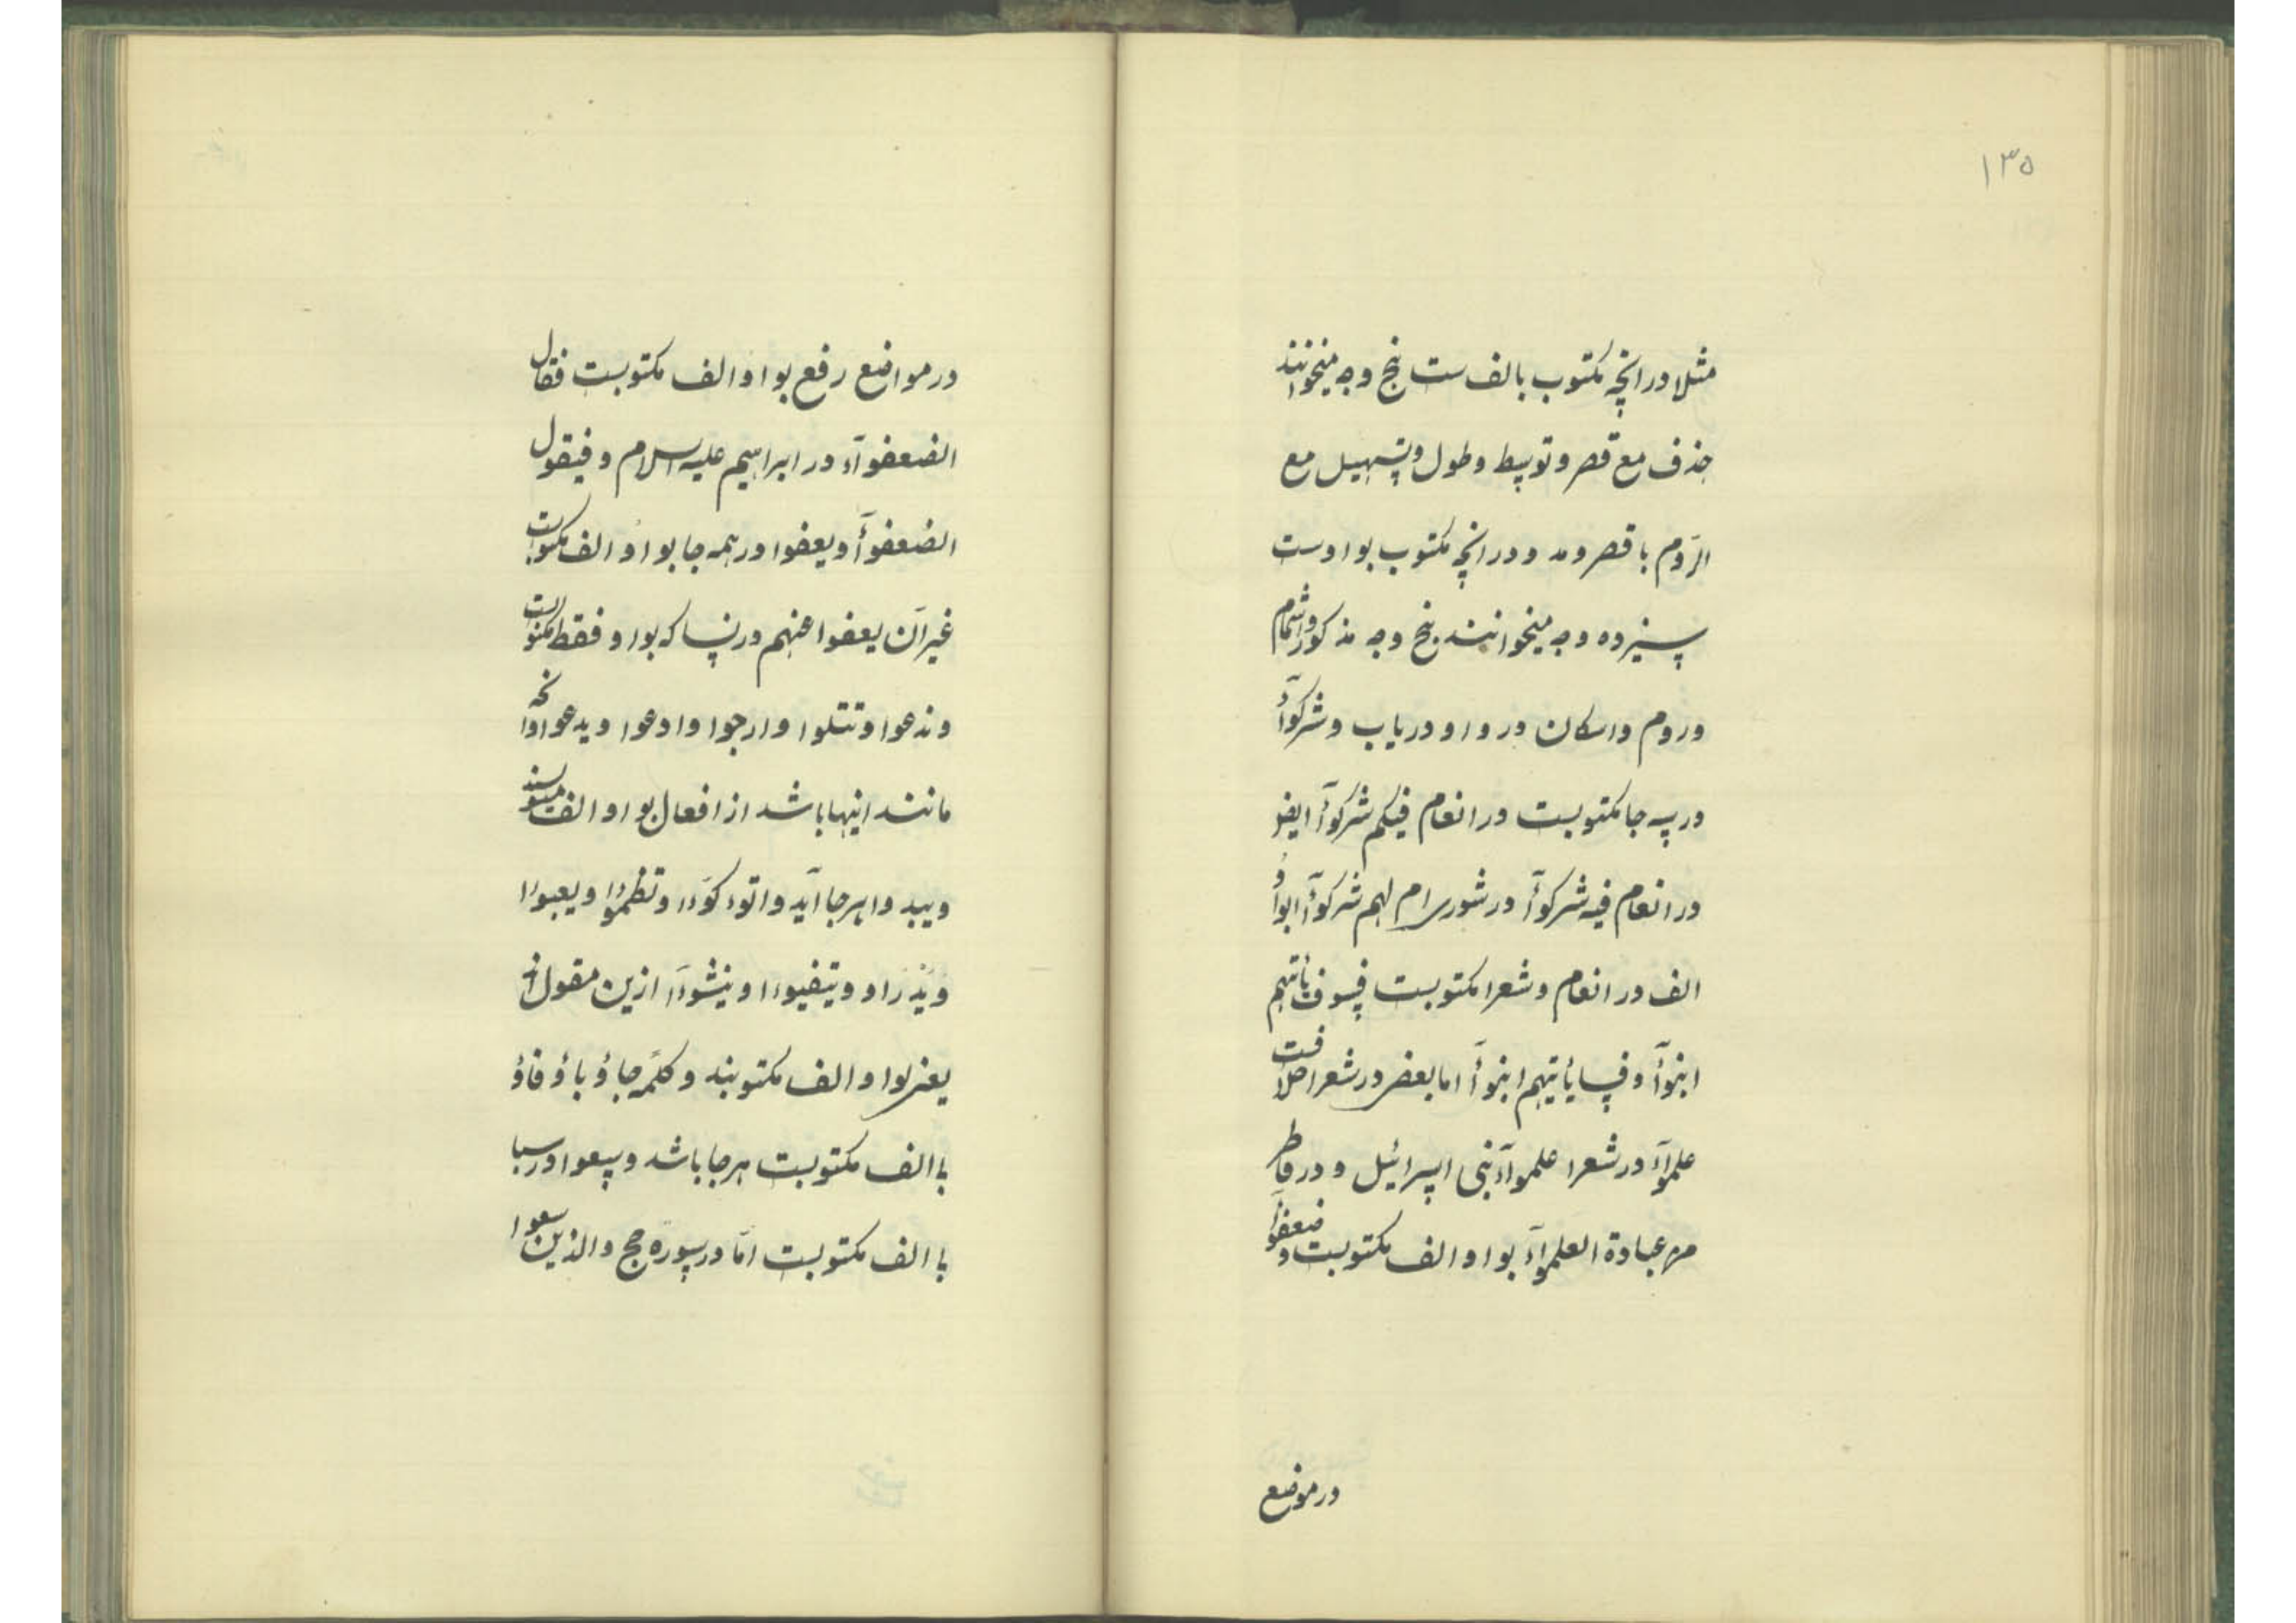 ۱۳۵
مثلا در انچه مکتوب بالف ست پنج وجه میخوانند
حذف مع قصر و توسط و طول و تسهیل مع
الرَوم با قصر و مد و در انچه مکتوب بواوست
سیزده وجه میخوانند پنج وجه مذکور و اشمام
و روم و اسکان در واو دریاب و شرکوآ
در سه جا مکتوبست در انعام فیکم شرکوآ ایضو
در انعام فیه شرکوآ در شوری ام لهم شرکوآ ابواو
الف در انعام و شعرا مکتوبست فسوف یأتیهم
انبوآ و فسیأتیهم انبوآ اما بعضی در شعرا
علموآ در شعرا علموآ بنی اسرائیل و در فاطر
من عبادة العلموآ بواو الف مکتوبست و ضعفوآ
در موضع
در مواضع رفع بواو الف مکتوبست فقال
الضعفوآ در ابراهیم علیه السلام و فیقول
الضعفوآ و یعفوا در همه جا بواو الف مکتوبست
غیر آن یعفوا عنهم در نسا که بواو فقط مکتوبست
و ندعوا و تتلوا و ارجوا و ادعوا و یدعوا و آنچه
مانند اینها باشد از افعال بواو الف مینویسند
و یبدوا هر جا آید و اتوکوا و تظمؤا و یعبوا
و یدرأو و یتفیوا و ینشوا ازین مقول اند
یعنی بواو الف مکتوبند و کلمه جاؤ باؤ فاؤ
با الف مکتوبست هر جا باشد و سعوا در سبا
با الف مکتوبست امّا در سوره حج والذین سعوا